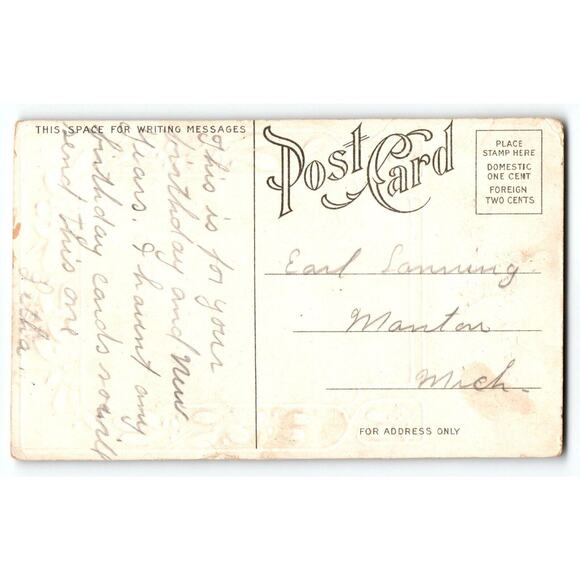 THIS SPACE FOR WRITING MESSAGES
This is for your
birthday and New
Years. I havent any
birthday cards so will
send this one
Retha.
Post Card
PLACE
STAMP HERE
DOMESTIC
ONE CENT
FOREIGN
TWO CENTS
Earl Lanning.
Manton
Mich.
FOR ADDRESS ONLY